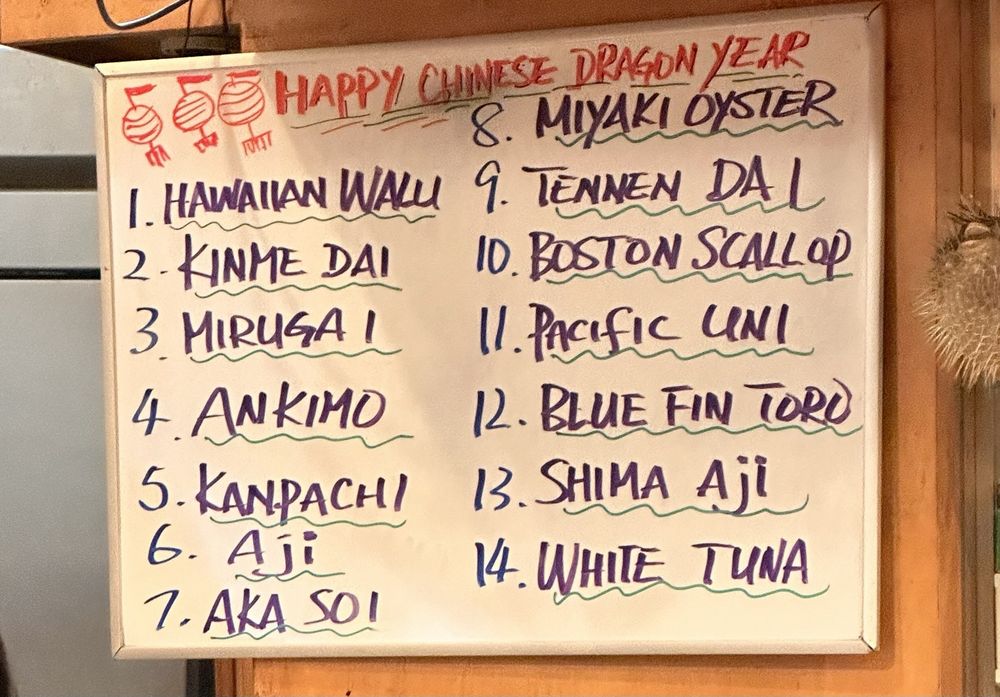 HAPPY CHINESE DRAGON YEAR
1. HAWAIIAN WALU
2. KINME DAI
3. MIRUGAI
4. ANKIMO
5. KANPACHI
6. Aji
7. AKA SOI
8. MIYAKI OYSTER
9. TENNEN DAI
10. BOSTON SCALLOP
11. PACIFIC UNI
12. BLUE FIN TORO
13. SHIMA Aji
14. WHITE TUNA